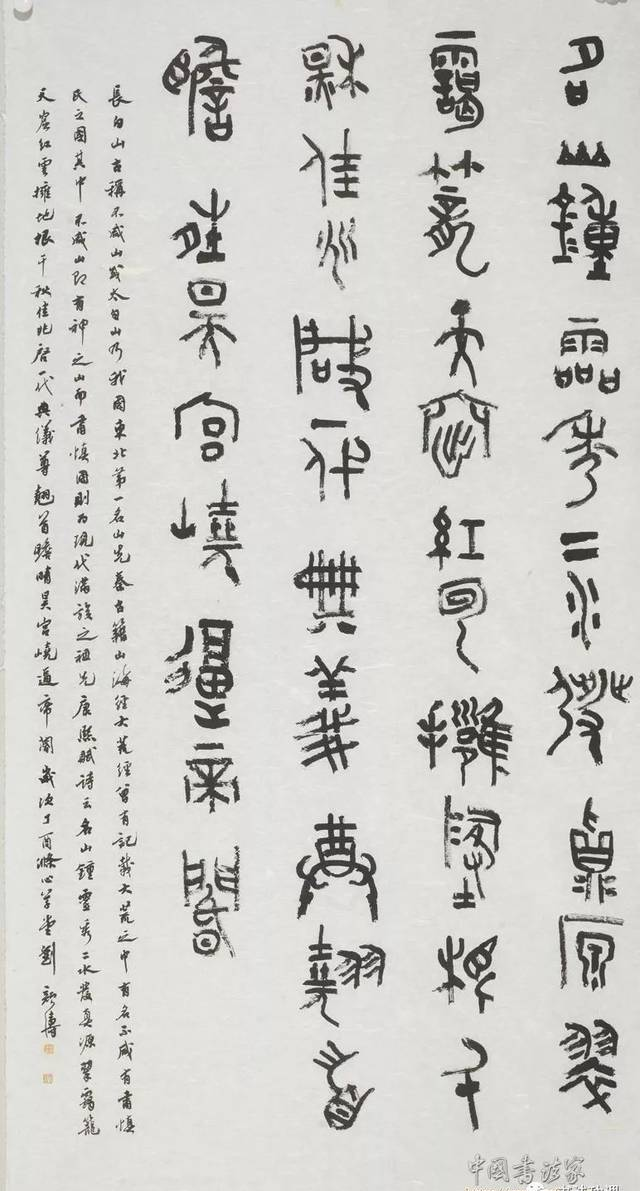 名山鐘靈秀二水發真源翠
靄籠天窟紅雲擁地根千
秋佳兆啟一代典義尊翹首
瞻晴昊宮嶢逼帝閽
長白山古稱不咸山或太白山乃我國東北第一名山先秦古籍山海經大荒經曾有記載大荒之中有名不咸有肅慎
氏之國其中不咸山即有神之山而肅慎國則為現代滿族之祖先康熙賦詩云名山鐘靈秀二水發真源翠靄籠
天窟紅雲擁地根千秋佳兆啟一代典儀尊翹首瞻晴昊宮嶢逼帝閽歲次丁酉滌心草堂劉
中國書法家